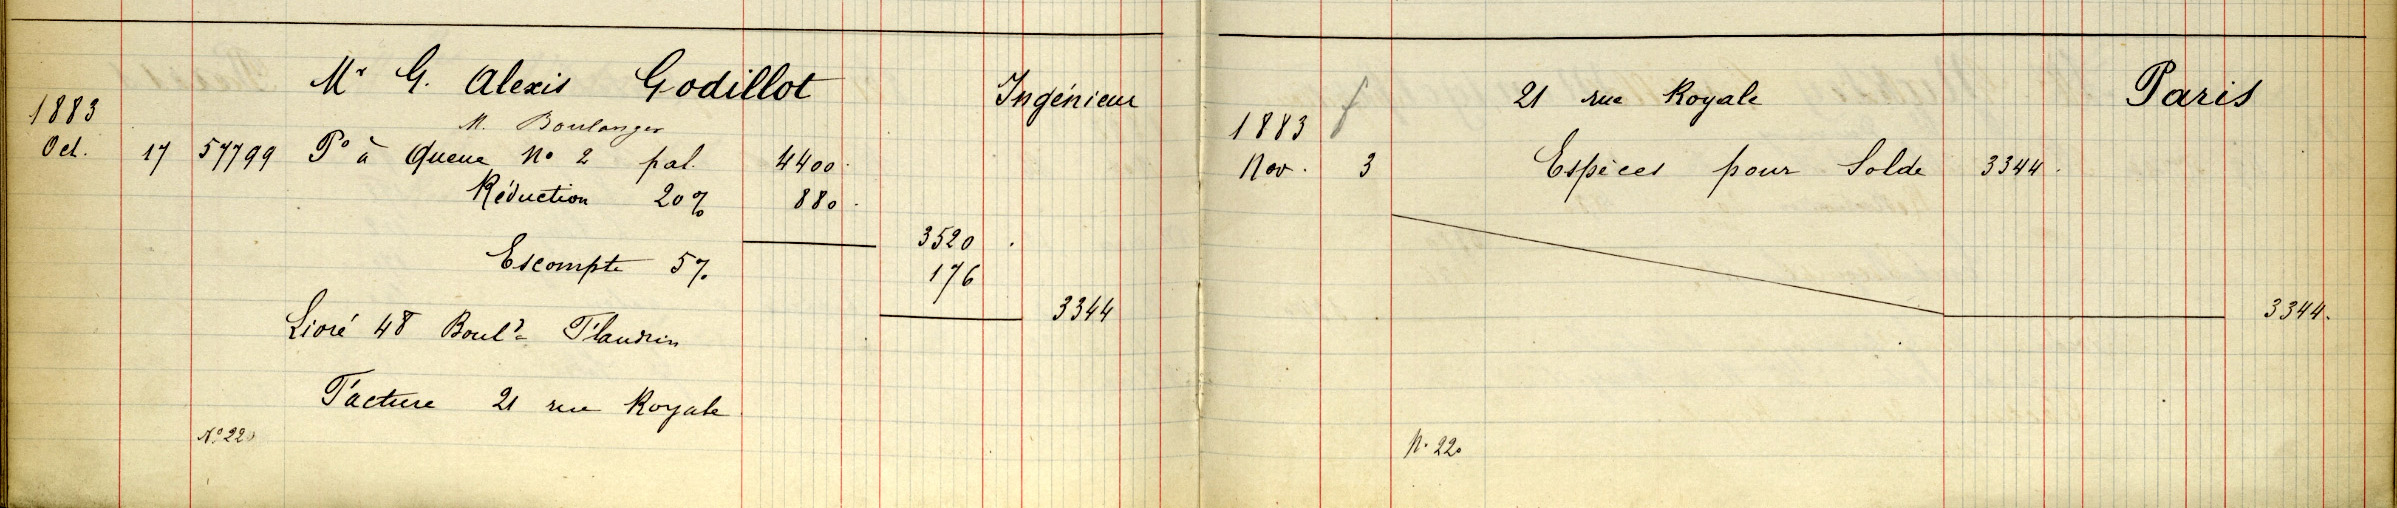 Mr G. Alexis Godillot Ingénieur
1883
M. Boulanger
Oct. 17 57799 Po à Queue No 2 pal. 4400
Réduction 20% 880
3520
Escompte 5% 176
3344
Livré 48 Bould Flandrin
Facture 21 rue Royale
No 220
21 rue Royale Paris
1883
Nov. 3 Espèces pour Solde 3344
3344.
N. 220